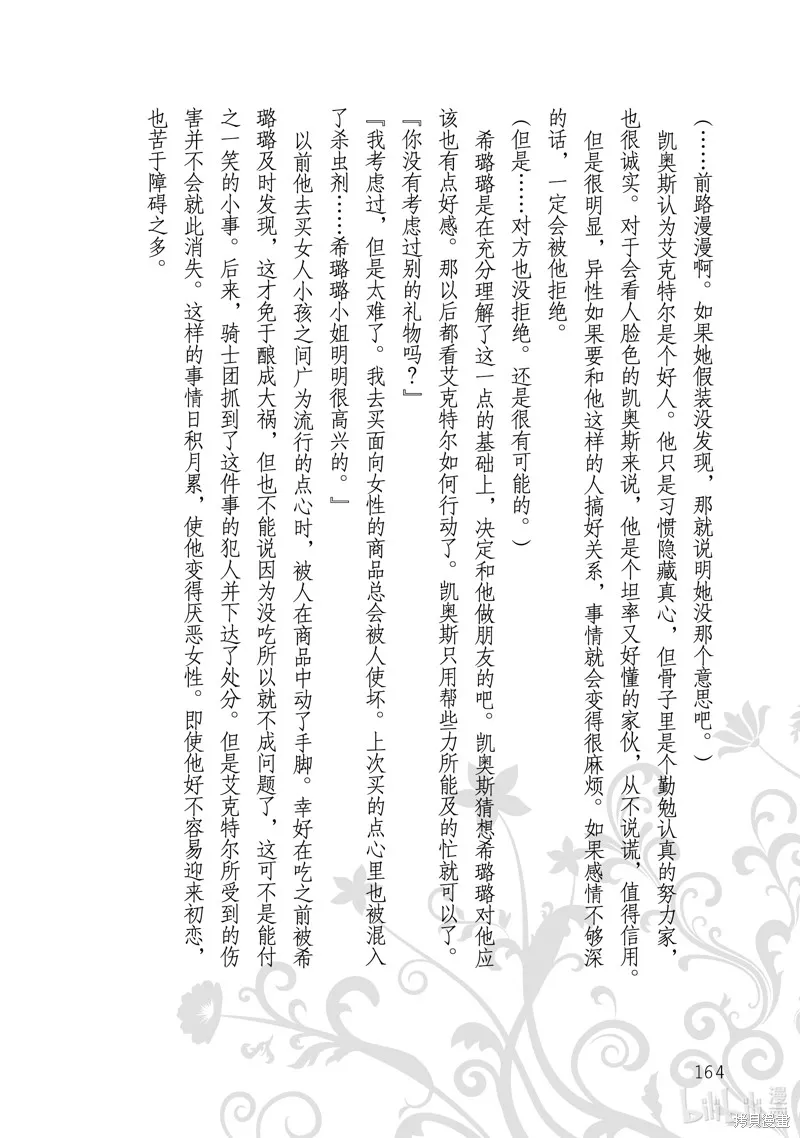 （……前路漫漫啊。如果她假装没发现，那就说明她没那个意思吧。）
凯奥斯认为艾克特尔是个好人。他只是习惯隐藏真心，但骨子里是个勤勉认真的努力家，
也很诚实。对于会看人脸色的凯奥斯来说，他是个坦率又好懂的家伙，从不说谎，值得信用。
但是很明显，异性如果要和他这样的人搞好关系，事情就会变得很麻烦。如果感情不够深
的话，一定会被他拒绝。
（但是……对方也没拒绝。还是很有可能的。）
希璐璐是在充分理解了这一点的基础上，决定和他做朋友的吧。凯奥斯猜想希璐璐对他应
该也有点好感。那以后都看艾克特尔如何行动了。凯奥斯只用帮些力所能及的忙就可以了。
『你没有考虑过别的礼物吗？』
『我考虑过，但是太难了。我去买面向女性的商品总会被人使坏。上次买的点心里也被混入
了杀虫剂……希璐璐小姐明明很高兴的。』
以前他去买女人小孩之间广为流行的点心时，被人在商品中动了手脚。幸好在吃之前被希
璐璐及时发现，这才免于酿成大祸，但也不能说因为没吃所以就不成问题了，这可不是能付
之一笑的小事。后来，骑士团抓到了这件事的犯人并下达了处分。但是艾克特尔所受到的伤
害并不会就此消失。这样的事情日积月累，使他变得厌恶女性。即使他好不容易迎来初恋，
也苦于障碍之多。
164
bilibili漫画
拷贝漫畫